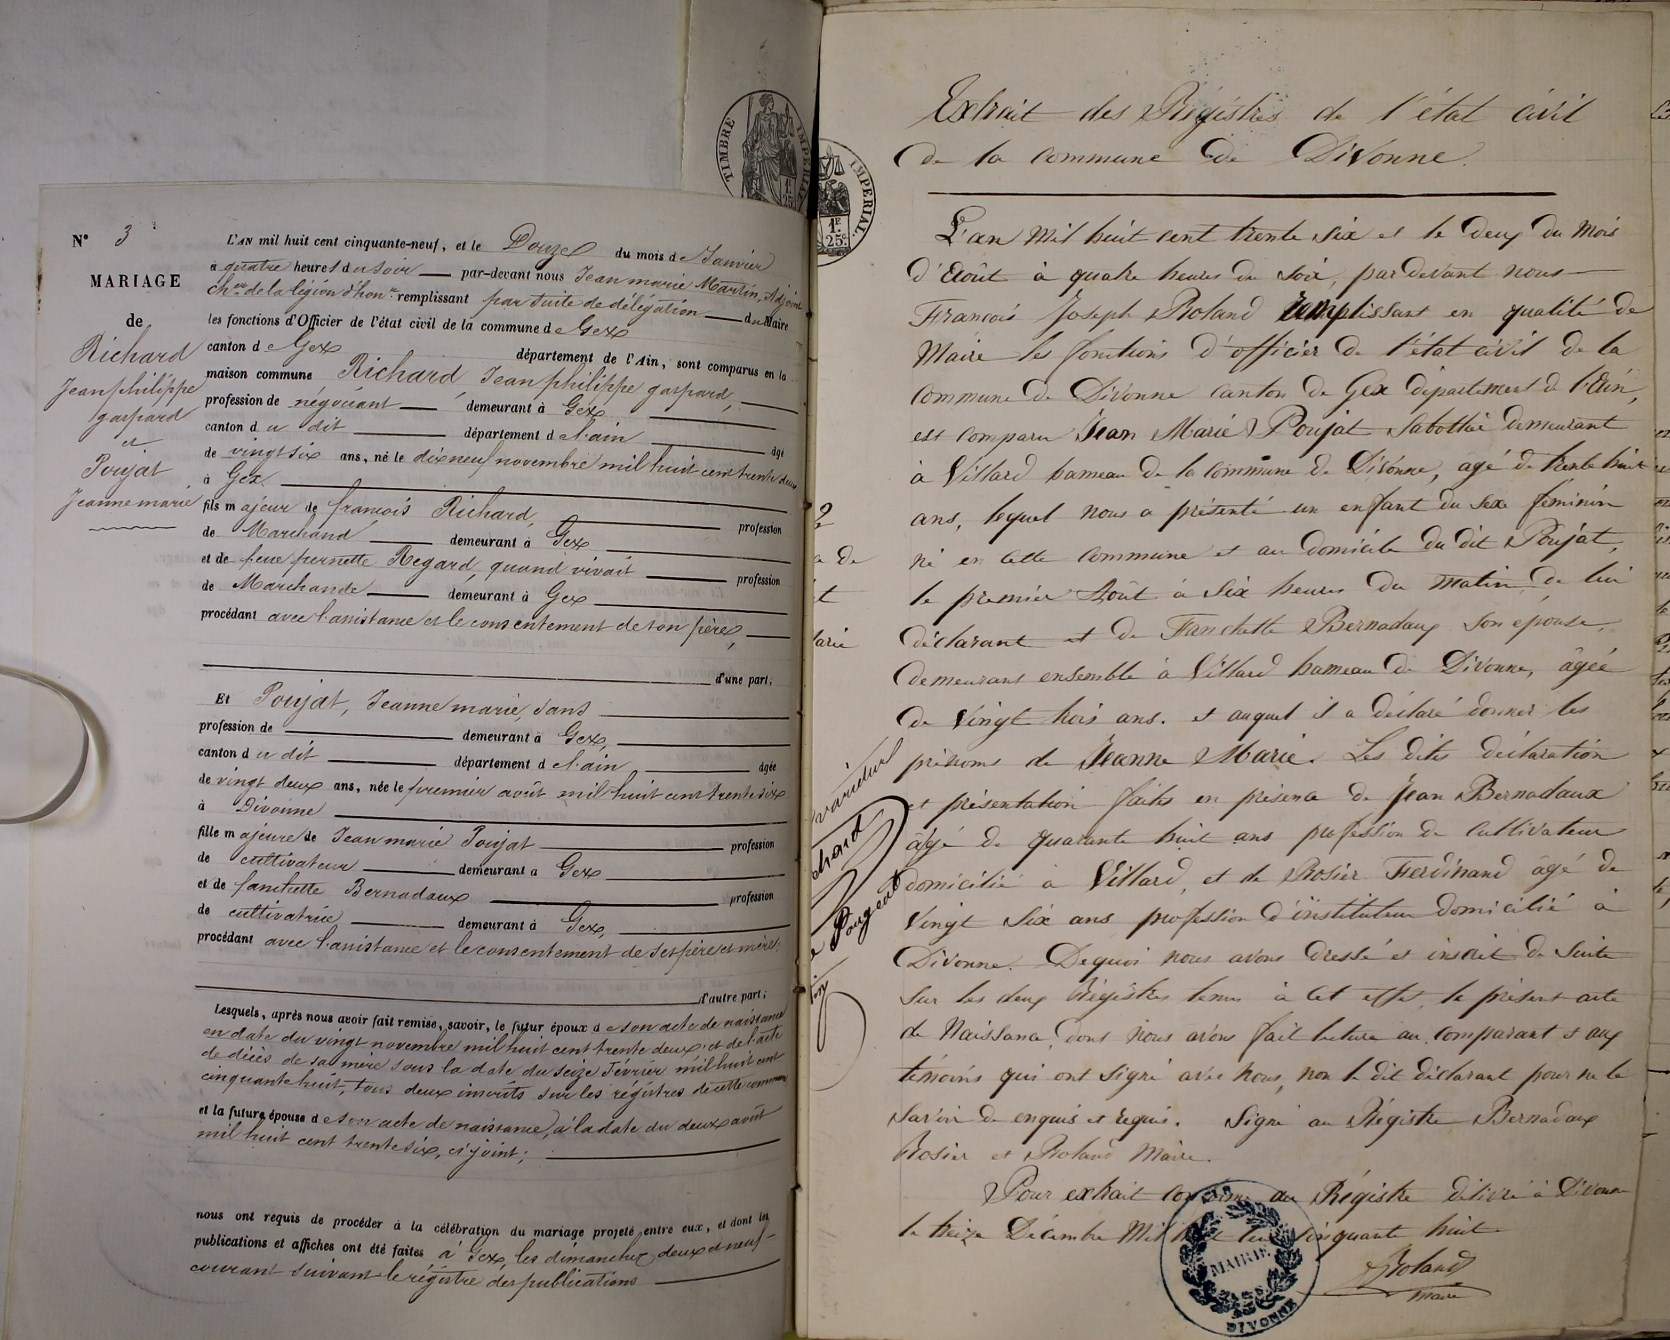 N° 3
MARIAGE
de
Richard
Jean philippe
gaspard
et
Poujat
Jeanne marie
L'AN mil huit cent cinquante-neuf, et le Douze du mois de Janvier
à quatre heures du soir par-devant nous Jean marie Martin, Adjoint
ch.er de la légion d'hon.r remplissant par suite de délégation du Maire
les fonctions d'Officier de l'état civil de la commune de Gex
canton de Gex département de l'Ain, sont comparus en la
maison commune Richard Jean philippe gaspard,
profession de négociant demeurant à Gex
canton du dit département de l'ain âgé
de vingt six ans, né le dix neuf novembre mil huit cent trente deux
à Gex
fils majeur de françois Richard, profession
de Marchand demeurant à Gex
et de feue pernette Regard, quand vivait profession
de Marchande demeurant à Gex
procédant avec l'assistance et le consentement de son père,
d'une part;
Et Poujat, Jeanne marie, sans
profession de demeurant à Gex,
canton du dit département de l'ain âgée
de vingt deux ans, née le premier août mil huit cent trente six
à Divonne
fille majeure de Jean marie Poujat profession
de cultivateur demeurant à Gex
et de fanchette Bernadaux profession
de cultivatrice demeurant à Gex,
procédant avec l'assistance et le consentement de ses père et mère.
d'autre part;
Lesquels, après nous avoir fait remise, savoir, le futur époux de son acte de naissance
en date du vingt novembre mil huit cent trente deux, et de l'acte
de décès de sa mère sous la date du seize Février mil huit cent
cinquante huit, tous deux inscrits sur les régistres de cette commune
et la future épouse de son acte de naissance, à la date du deux août
mil huit cent trente six, ci joint;
nous ont requis de procéder à la célébration du mariage projeté entre eux, et dont les
publications et affiches ont été faites à Gex, les dimanches deux et neuf
courant suivant le régistre des publications
TIMBRE IMPERIAL
1F
25c
Extrait des Régistres de l'état civil
de la commune de Divonne.
L'an mil huit cent trente six et le deux du mois
d'Août à quatre heures du soir, par devant nous
François Joseph Roland remplissant en qualité de
Maire les fonctions d'officier de l'état civil de la
commune de Divonne canton de Gex département de l'Ain,
est comparu Jean Marie Poujat Sabottier demeurant
à Villard hameau de la commune de Divonne, agé de trente huit
ans, lequel nous a présenté un enfant du sexe féminin
né en cette commune et au domicile du dit Poujat,
le premier Août à six heures du matin de lui
déclarant et de Fanchette Bernadaux son épouse,
demeurans ensemble à Villard hameau de Divonne, âgée
de vingt trois ans. et auquel il a déclaré donner les
prénoms de Jeanne Marie. Les dites déclaration
et présentation faites en présence de Jean Bernadaux
âgé de quarante huit ans profession de cultivateur
domicilié à Villard, et de Rosier Ferdinand âgé de
vingt six ans profession d'instituteur domicilié à
Divonne. De quoi nous avons dressé et inscrit de suite
sur les deux Régistres tenus à cet effet le présent acte
de Naissance, dont nous avons fait lecture au comparant et aux
témoins qui ont signé avec nous, non le dit déclarant pour ne le
savoir de enquis et requis. Signé au Régistre Bernadaux
Rosier et Roland Maire.
Pour extrait conforme au Régistre délivré à Divonne
le treize Décembre Mil huit cent cinquante huit
Roland
maire
MAIRIE
DIVONNE